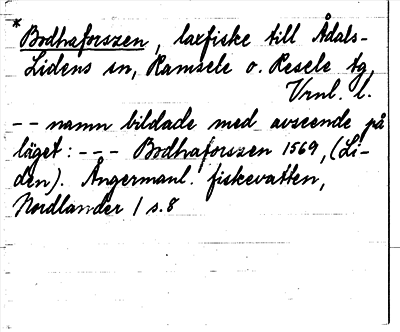 * Bodhaforszen, laxfiske till Ådals-
Lidens sn, Ramsele o. Resele tg,
Vrnl. l.
-- namn bildade med avseende på
läget: --- Bodhaforszen 1569, (Li-
den). Ångermanl. fiskevatten,
Nordlander 1 s. 8